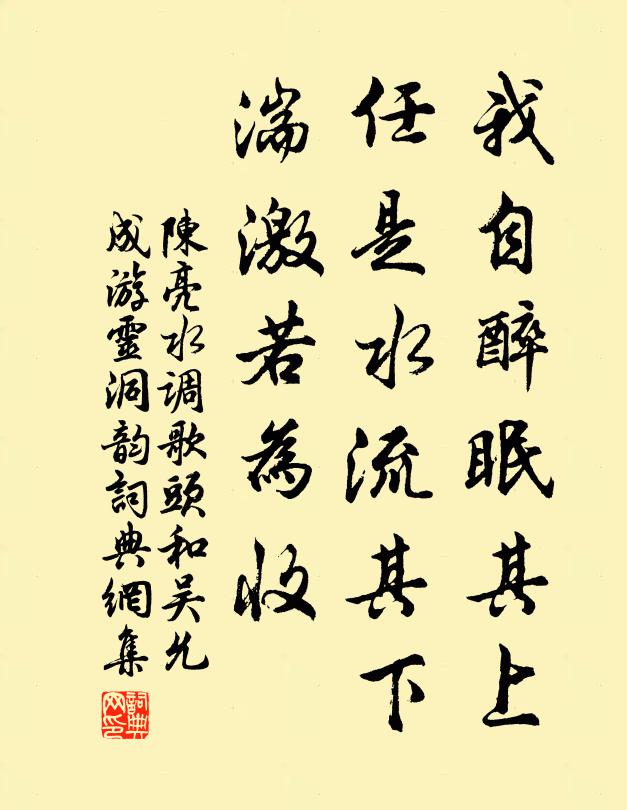 我自醉眠其上
任是水流其下
湍激若為收
陳亮水调歌頭和吴允
成游靈洞韵詞典網集
詞典網印